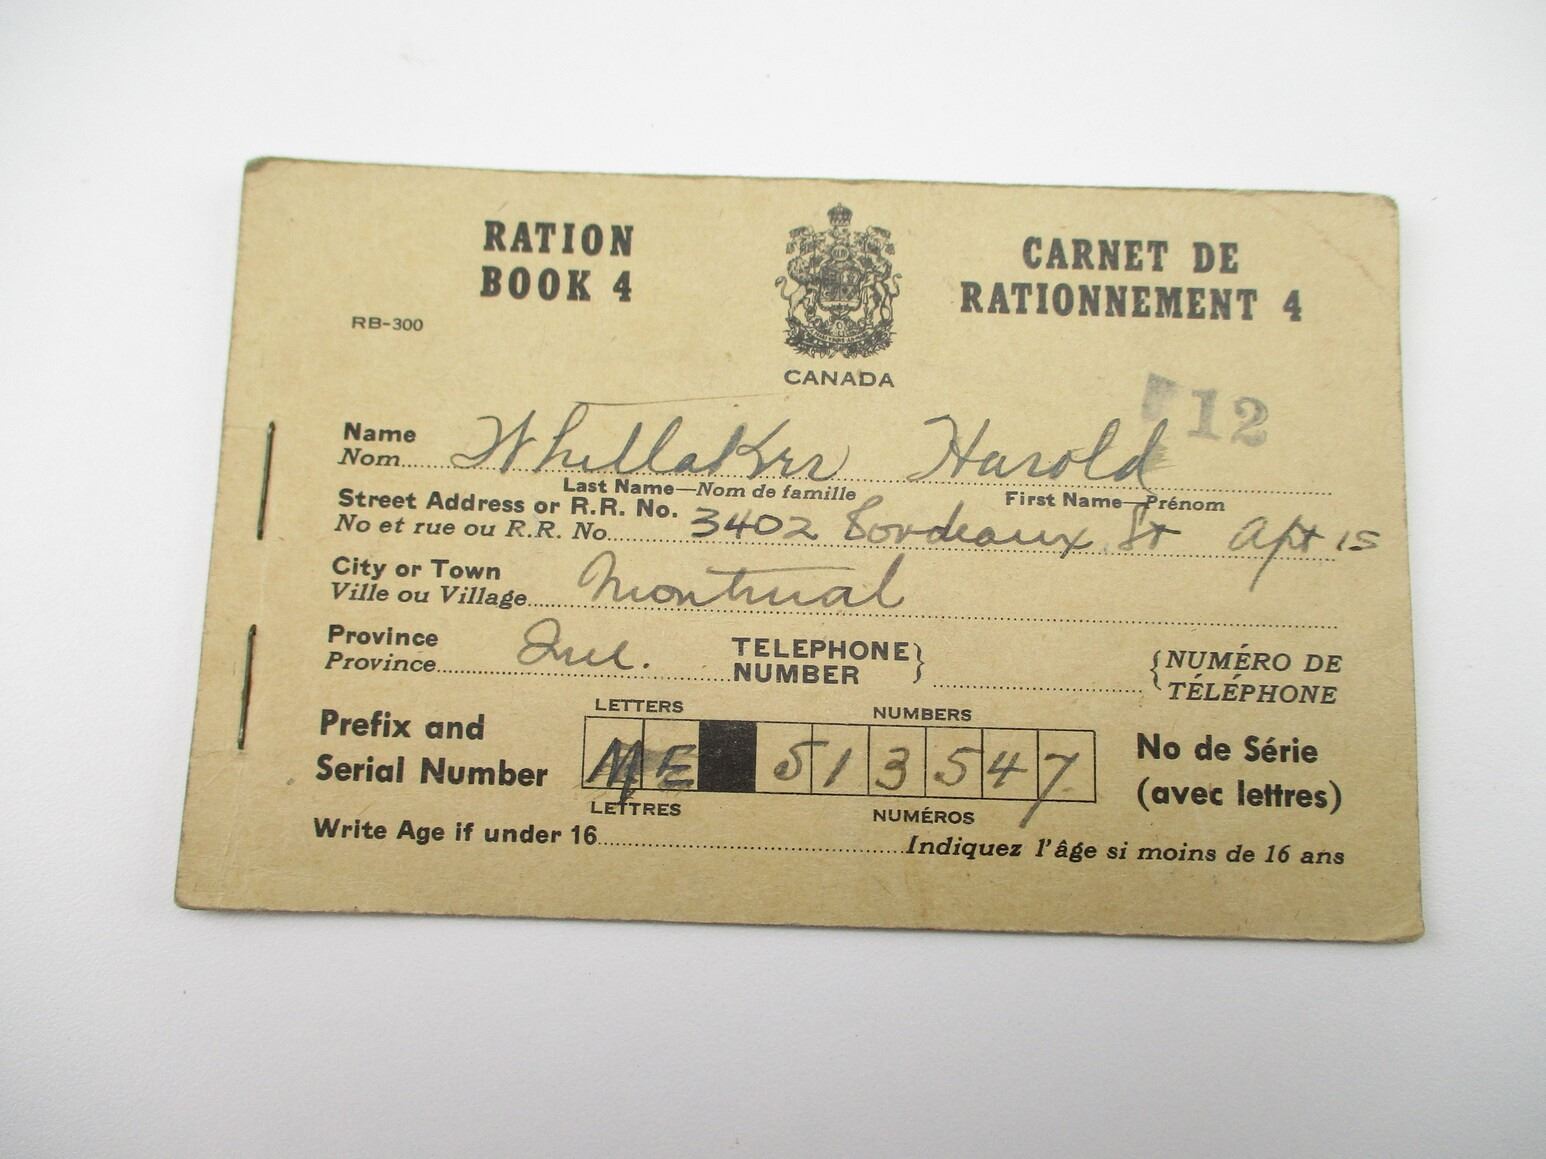 RATION
BOOK 4
RB-300
CANADA
CARNET DE
RATIONNEMENT 4
12
Name
Nom Whittaker Harold
Last Name—Nom de famille First Name—Prénom
Street Address or R.R. No.
No et rue ou R.R. No 3402 Bordeaux St Apt 15
City or Town
Ville ou Village Montreal
Province
Province Que. TELEPHONE NUMBER NUMÉRO DE TÉLÉPHONE
LETTERS NUMBERS
Prefix and Serial Number ME 513547 No de Série (avec lettres)
LETTRES NUMÉROS
Write Age if under 16 Indiquez l'âge si moins de 16 ans